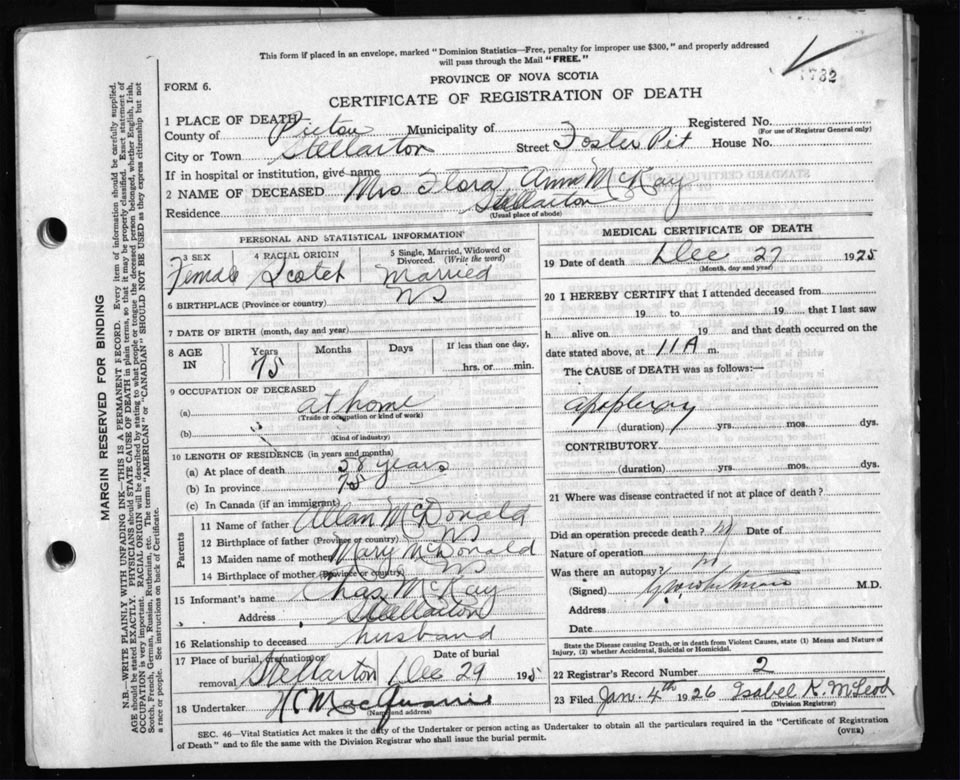 This form if placed in an envelope, marked "Dominion Statistics—Free, penalty for improper use $300," and properly addressed
will pass through the Mail "FREE."
1732
PROVINCE OF NOVA SCOTIA
FORM 6.
CERTIFICATE OF REGISTRATION OF DEATH
1 PLACE OF DEATH
Registered No.
County of Pictou Municipality of
(For use of Registrar General only)
City or Town Stellarton Street Foster Pit House No.
If in hospital or institution, give name
2 NAME OF DECEASED Mrs Flora Ann McKay
Residence Stellarton
(Usual place of abode)
PERSONAL AND STATISTICAL INFORMATION
3 SEX Female
4 RACIAL ORIGIN Scotch
5 Single, Married, Widowed or Divorced. (Write the word) Married
6 BIRTHPLACE (Province or country) NS
7 DATE OF BIRTH (month, day and year)
8 AGE IN Years 75 Months Days If less than one day, hrs. or min.
9 OCCUPATION OF DECEASED
(a) at home
(Trade or occupation or kind of work)
(b)
(Kind of industry)
10 LENGTH OF RESIDENCE (in years and months)
(a) At place of death 58 years
(b) In province 75
(c) In Canada (if an immigrant)
Parents
11 Name of father Allan McDonald
12 Birthplace of father (Province or country) NS
13 Maiden name of mother Mary McDonald
14 Birthplace of mother (Province or country) NS
15 Informant's name Chas McKay
Address Stellarton
16 Relationship to deceased husband
17 Place of burial, cremation or removal Stellarton Date of burial Dec 29 1925
18 Undertaker
(Name and address)
MEDICAL CERTIFICATE OF DEATH
19 Date of death Dec 27 1925
(Month, day and year)
20 I HEREBY CERTIFY that I attended deceased from
19 to 19 that I last saw
h alive on 19 and that death occurred on the
date stated above, at 11 A m.
The CAUSE of DEATH was as follows:—
apoplexy
(duration) yrs. mos. dys.
CONTRIBUTORY
(duration) yrs. mos. dys.
21 Where was disease contracted if not at place of death?
Did an operation precede death? Date of
Nature of operation
Was there an autopsy?
(Signed) M.D.
Address
Date
State the Disease causing Death, or in death from Violent Causes, state (1) Means and Nature of
Injury, (2) whether Accidental, Suicidal or Homicidal.
22 Registrar's Record Number 2
23 Filed Jan. 4th 1926 Isabel K. McLeod
(Division Registrar)
SEC. 46—Vital Statistics Act makes it the duty of the Undertaker or person acting as Undertaker to obtain all the particulars required in the "Certificate of Registration
of Death" and to file the same with the Division Registrar who shall issue the burial permit.
(OVER)
MARGIN RESERVED FOR BINDING
N.B.—WRITE PLAINLY WITH UNFADING INK—THIS IS A PERMANENT RECORD. Every item of information should be carefully supplied.
AGE should be stated EXACTLY. PHYSICIANS should STATE CAUSE OF DEATH in plain terms, so that it may be properly classified. Exact statement of
OCCUPATION is very important. RACIAL ORIGIN will be described by stating to what people or tongue the deceased person belonged, whether English, Irish,
Scotch, French, German, Russian, Ruthenian, etc. The terms "AMERICAN" or "CANADIAN" SHOULD NOT BE USED as they express citizenship but not
a race or people. See instructions on back of Certificate.